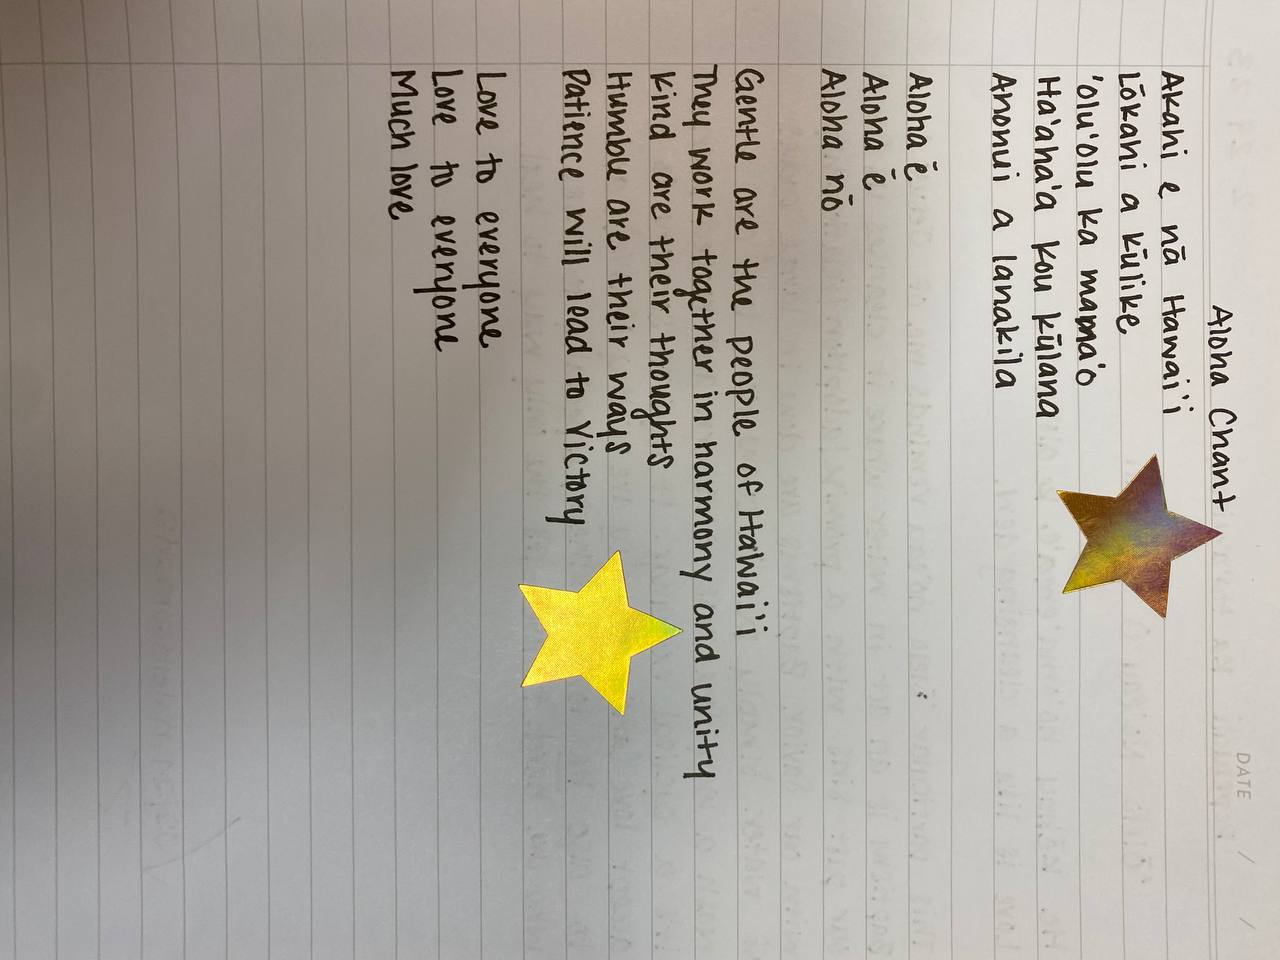 DATE / /
Aloha Chant
Akahi e nā Hawai'i
Lōkahi a kūlike
'olu'olu ka mama'o
Ha'aha'a kou kūlana
Ahonui a lanakila
Aloha ē
Aloha ē
Aloha nō
Gentle are the people of Hawai'i
They work together in harmony and unity
Kind are their thoughts
Humble are their ways
Patience will lead to Victory
Love to everyone
Love to everyone
Much love